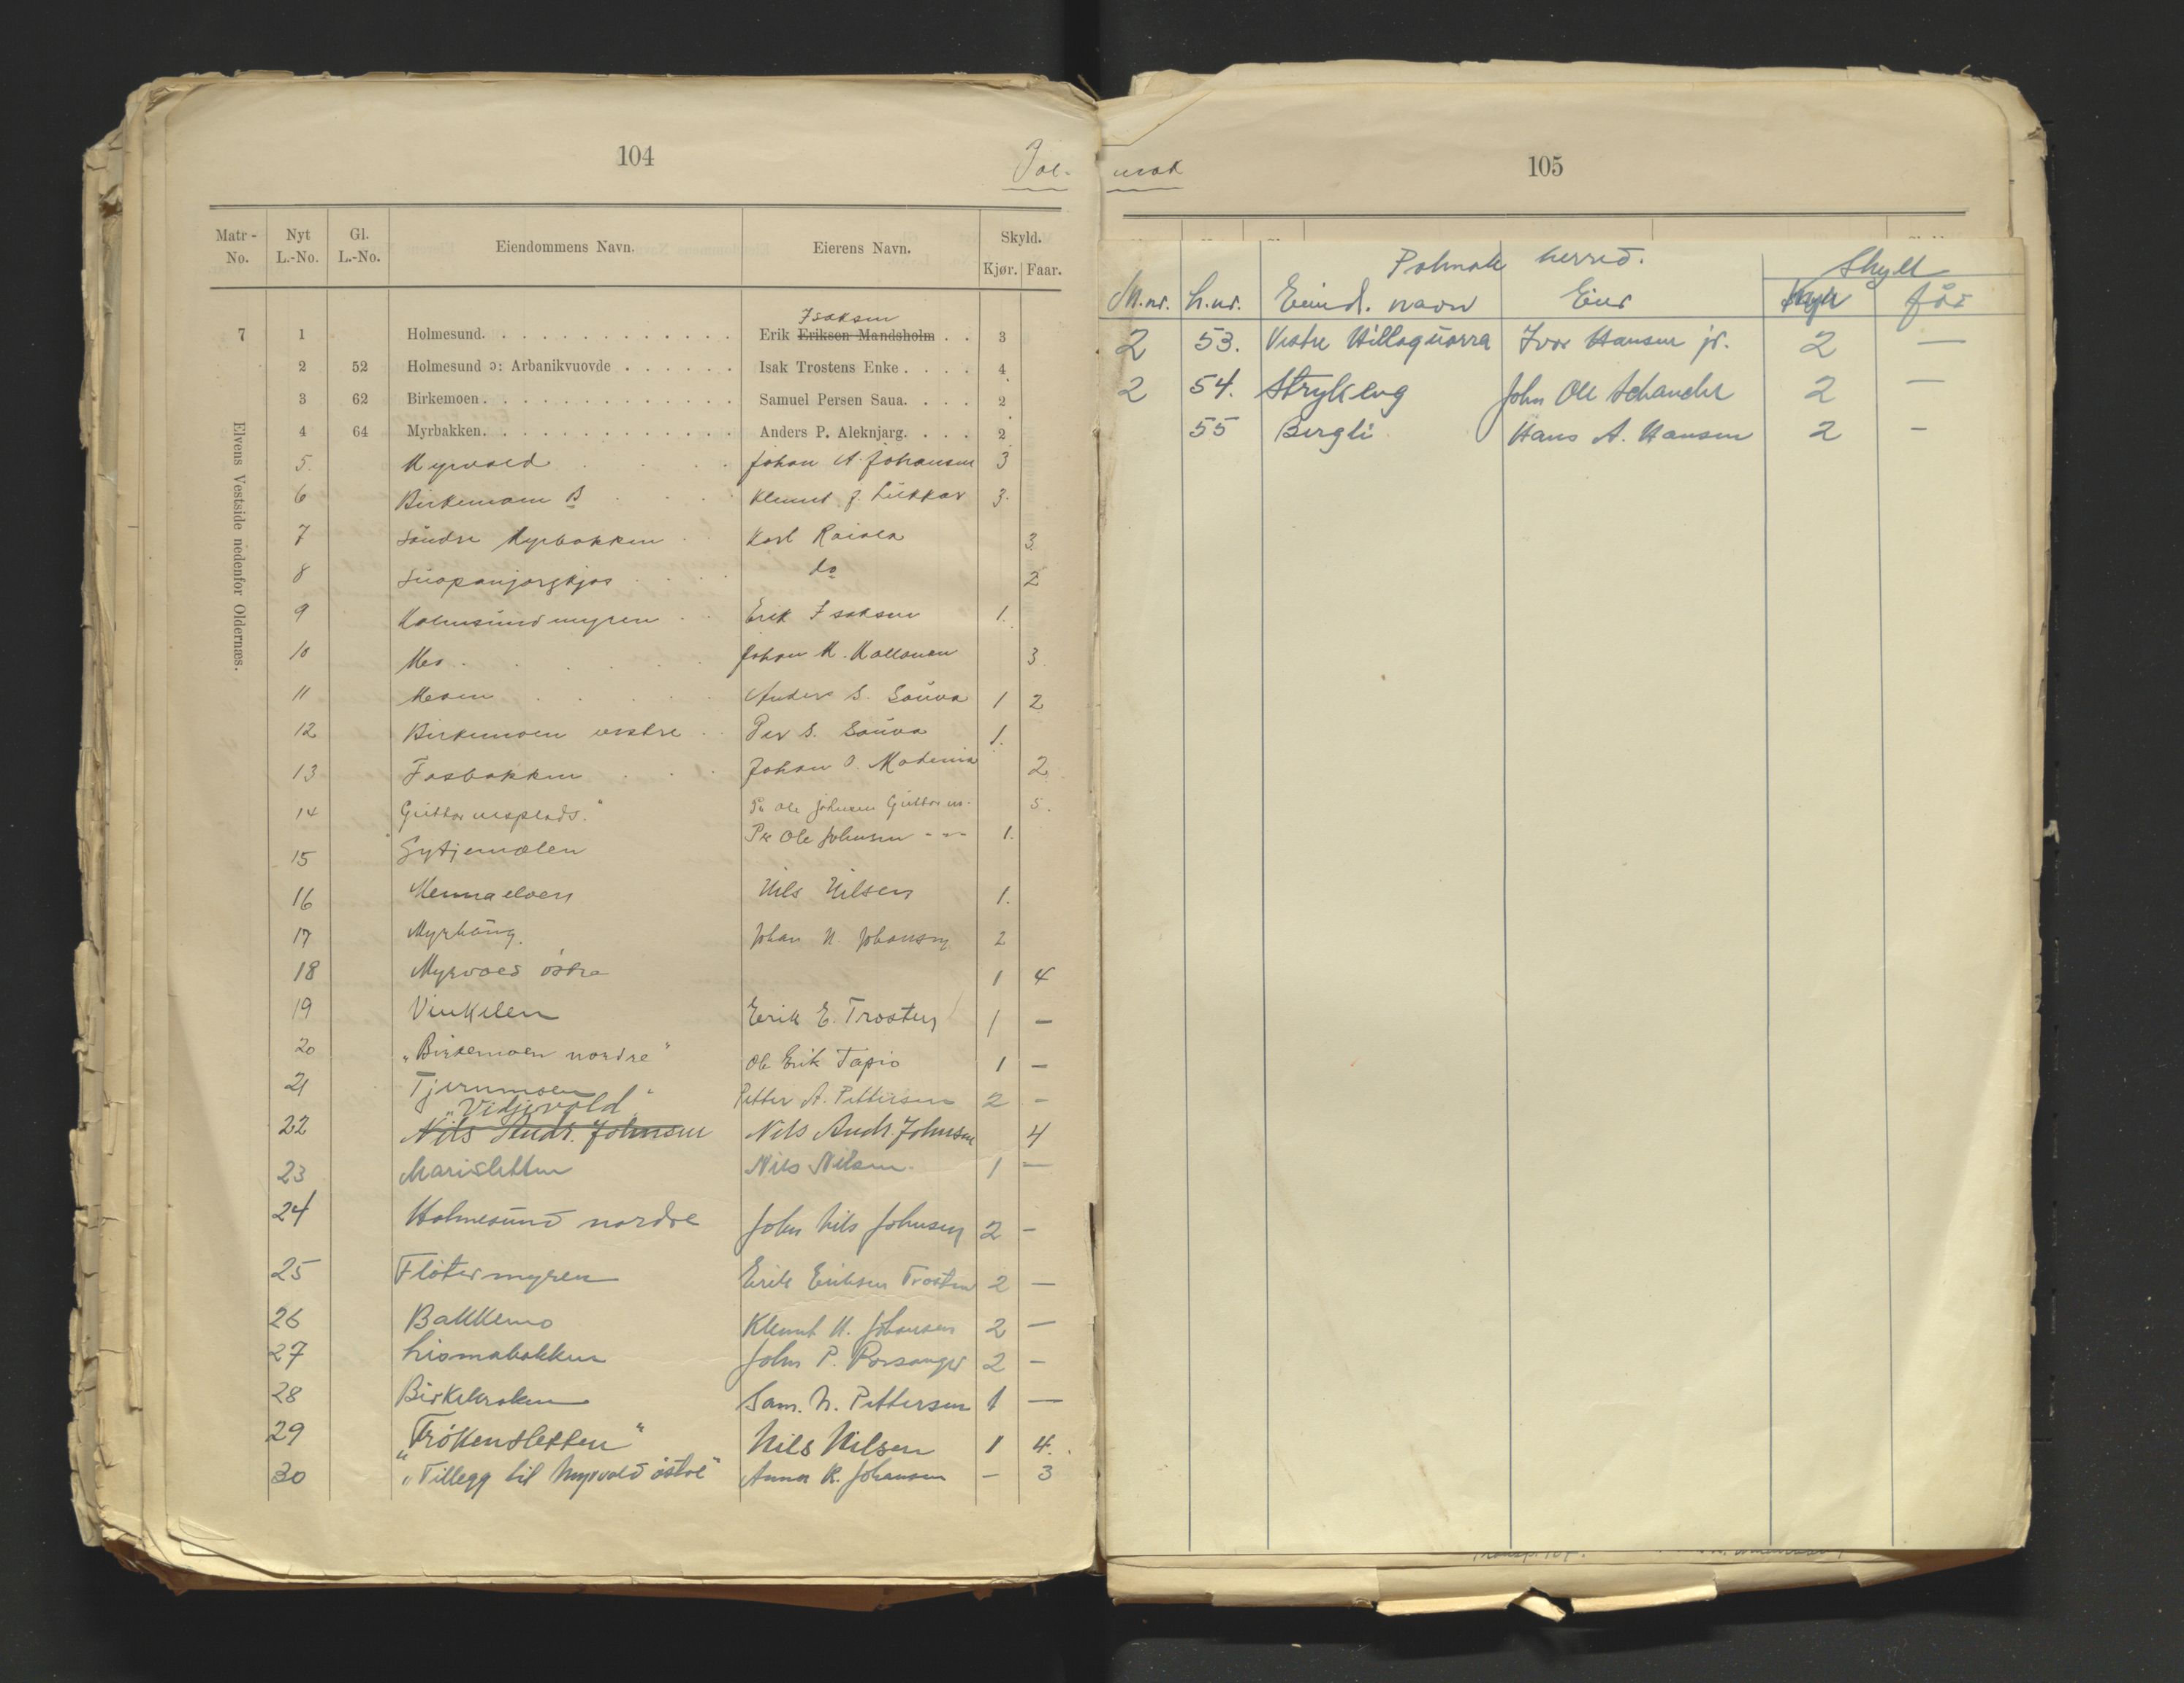 104
Matr-No. Nyt L.-No. Gl. L.-No. Eiendommens Navn. Eierens Navn. Skyld.
Kjør. Faar.
Elvens Vestside nedenfor Oldernæs.
Isaksen
7 1 Holmesund. Erik Eriksen Mandsholm 3
2 52 Holmesund ɔ: Arbanikvuovde Isak Trostens Enke 4
3 62 Birkemoen Samuel Persen Saua 2
4 64 Myrbakken Anders P. Aleknjarg 2
5. Myrvold Johan A. Johansen 3
6 Birkemoen B Klemet J. 3.
7 Söndre Myrbakken Karl Raiola 3
8 do 2
9 Holmsundmyren Erik Isaksen 1.
10 Mo Johan K. 3
11 Moen Anders S. Sauva 1 2
12 Birkemoen vestre Per S. Sauva 1.
13 Fosbakken Johan O. 2
14 Guttormsplads. Per Ole Johnsen Guttorm. 5.
15 Per Ole Johnsen -"- 1.
16 Mennaelven Nils Nilsen 1.
17 Myrhaug. Johan N. Johansen 2
18 Myrvold östre 1 4
19 Vinkelen Erik E. Trosten 1 —
20 "Birkemoen nordre" Ole Erik Tapio 1 —
21 Tjernmoen Petter A. Pettersen 2 -
"Vidjevold"
22 Nils Andr. Johnsen Nils Andr. Johnsen 4
23 Marisletten Nils Nilsen 1 —
24 Holmesund nordre John Nils Johnsen 2 -
25 Flötermyren Erik Eriksen Trosten 2 —
26 Bakkemo Klemet N. Johansen 2 —
27 Liomabakken John P. Porsanger 2 -
28 Birkekroken Sam. N. Pettersen 1 —
29 "Frökensletten" Nils Nilsen 1 4.
30 "Tillegg til Myrvold östre" Anna K. Johansen - 3
105
Polmak herred.
M.nr. L.nr. Eiend. navn Eier Skyld
Kyr får
2 53. Vestre Hillagurra Ivar Hansen jr. 2 —
2 54. Strykeng John Ole Schanche 2 —
55 Bergli Hans A. Hansen 2 -